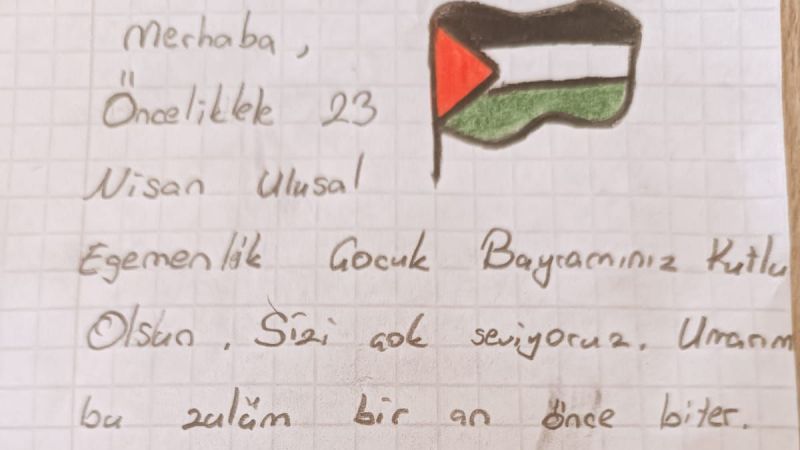 Merhaba,
Öncelikle 23
Nisan Ulusal
Egemenlik Çocuk Bayramınız Kutlu
Olsun. Sizi çok seviyoruz. Umarım
bu zulüm bir an önce biter.